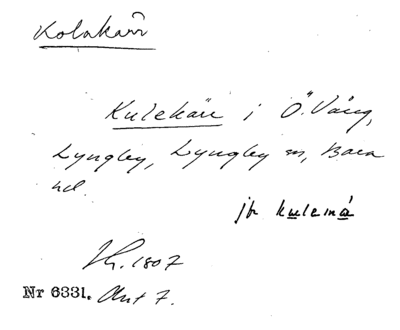 Kolakärr
Kulekärr i Ö. Vång,
Lyngby, Lyngby sn, Bara
hd.
jfr kulemå
1807
Nr 6331. Ant 7.